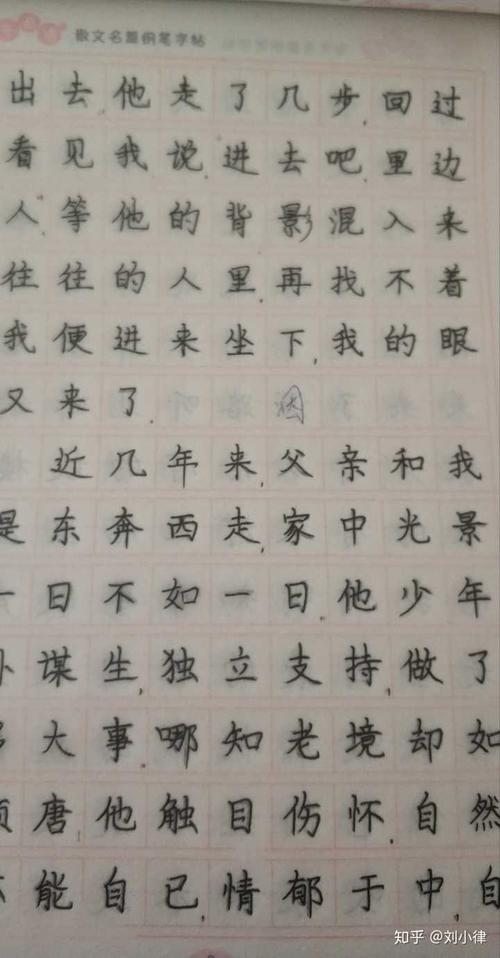 散文名篇钢笔字帖
出去,他走了几步,回过
看见我说,进去吧,里边
人,等他的背影混入来
往往的人里,再找不着
我便进来坐下,我的眼
又来了.
近几年来,父亲和我
是东奔西走,家中光景
一日不如一日.他少年
外谋生,独立支持,做了
多大事.哪知老境却如
颓唐,他触目伤怀,自然
能自已,情郁于中,自
知乎 @刘小律